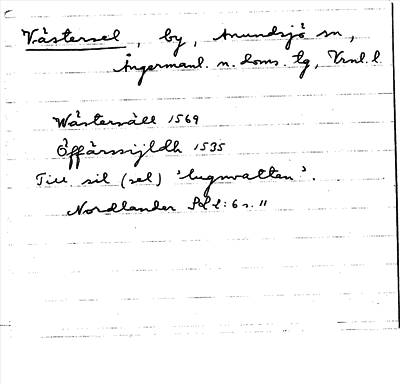 Västersel, by, Anundsjö sn,
Ångermanl. n. doms. tg, Vrnl. l.
Wästersåll 1569
Öffärssijldh 1535
Till sil (sel) 'lugnvatten'.
Nordlander 2:6 s. 11